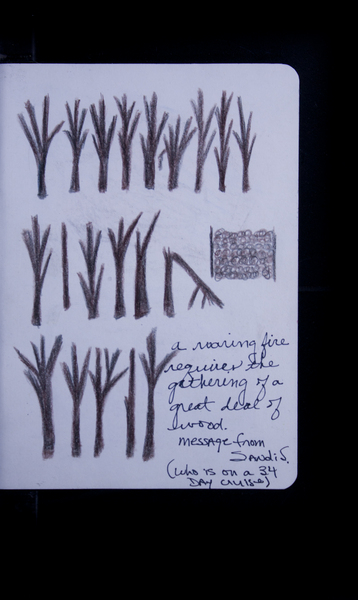 a roaring fire
requires the
gathering of a
great deal of
wood.
message from
Sandi S.
(who is on a 34
DAY cruise)